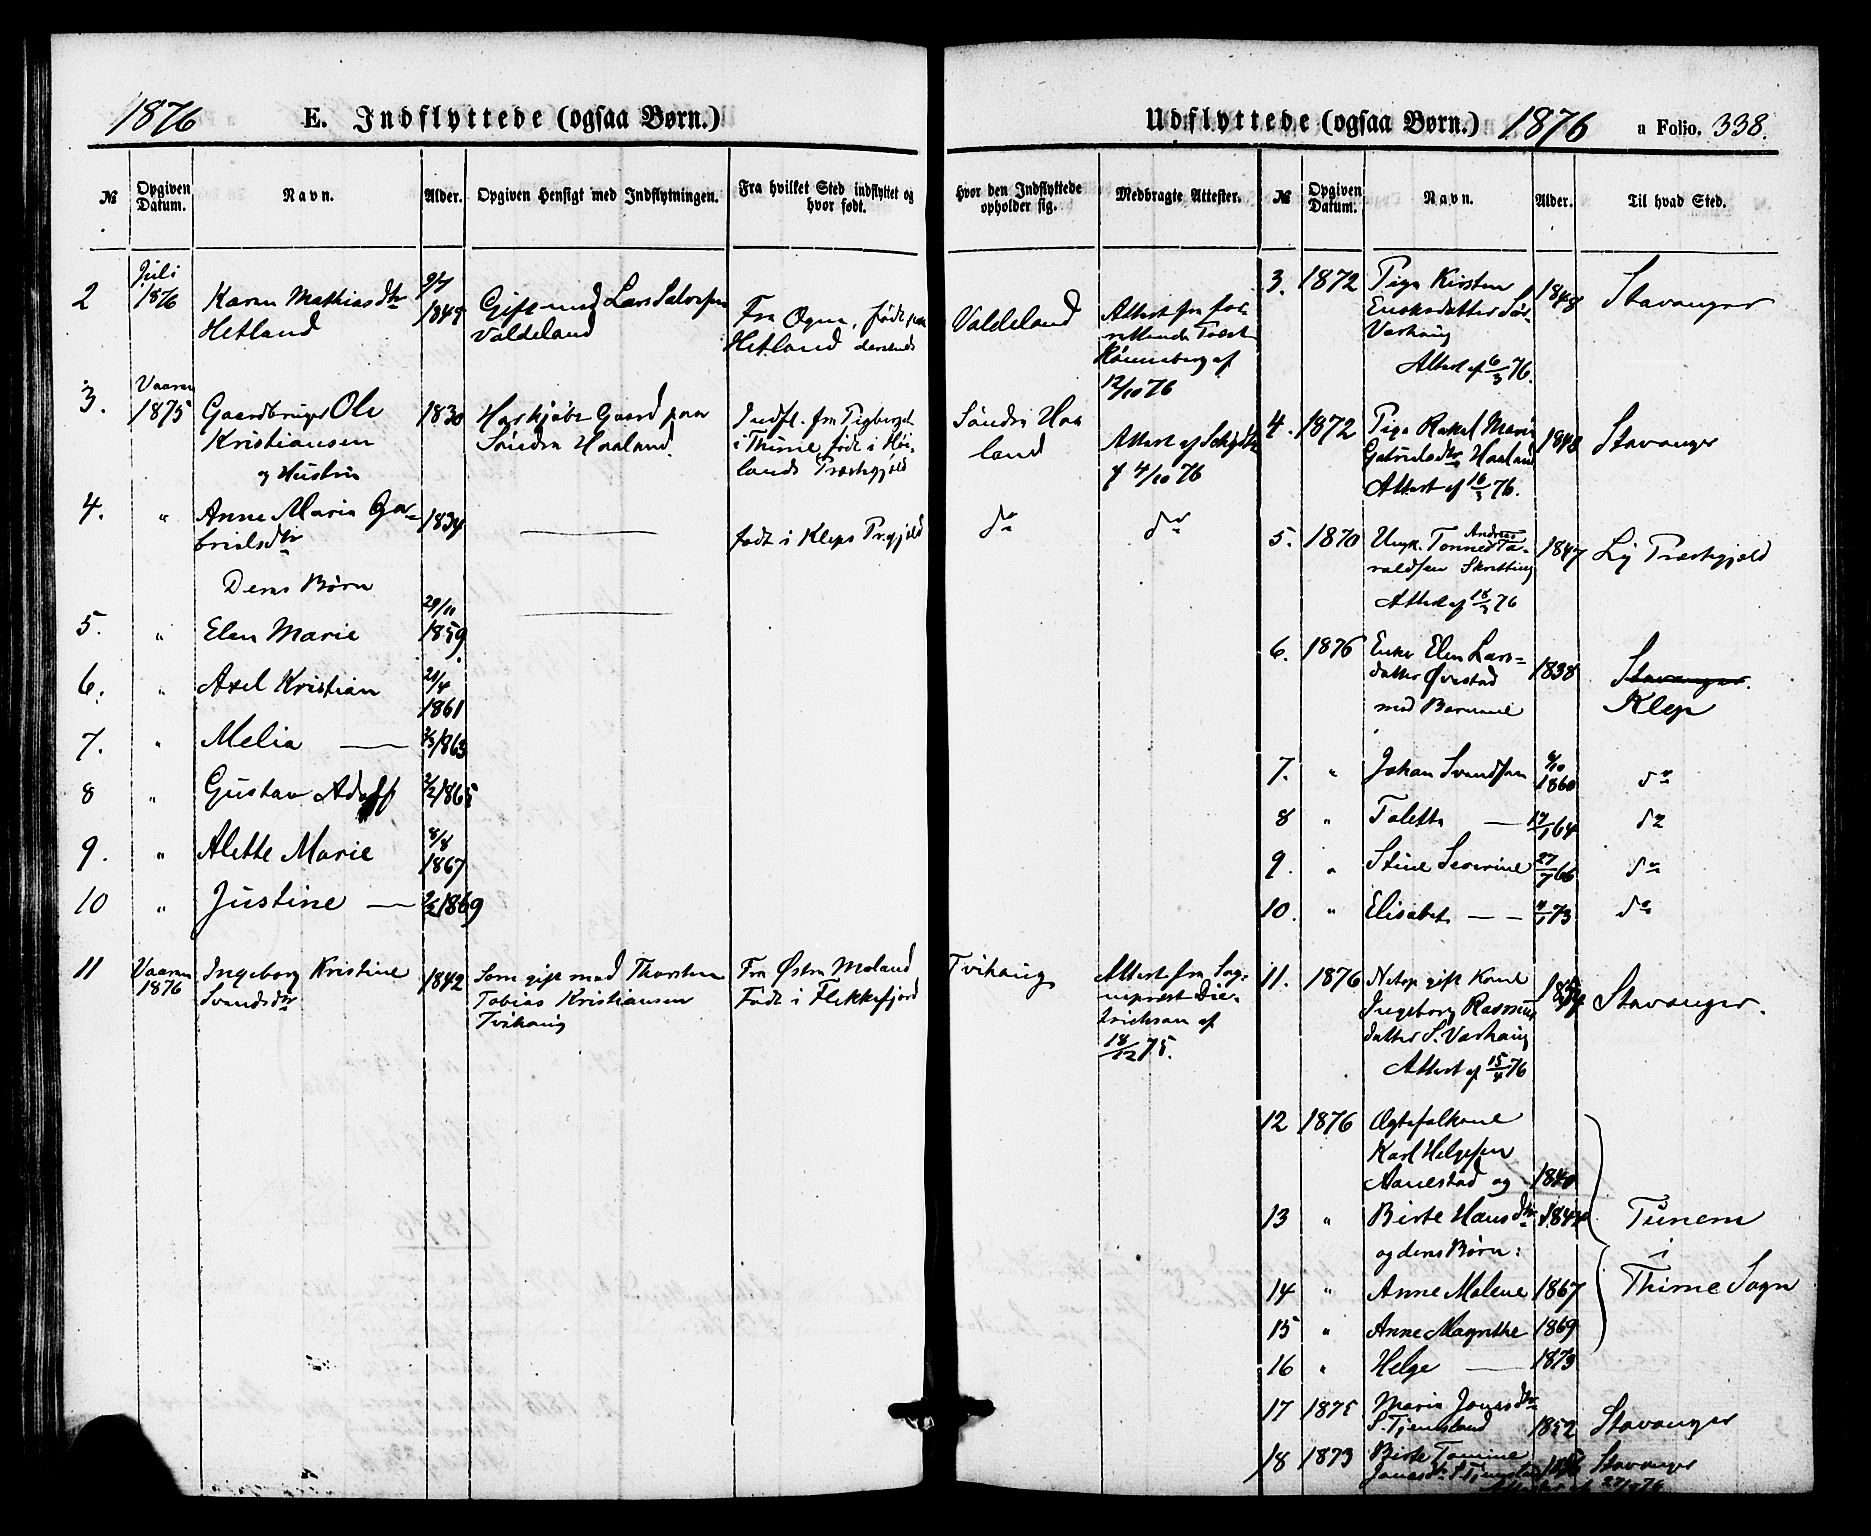 1876 E. Indflyttede (ogsaa Børn.)
№ Opgiven Datum. Navn. Alder. Opgiven Hensigt med Indflytningen. Fra hvilket Sted indflyttet og hvor født. Hvor den Indflyttede opholder sig. Medbragte Attester.
2 Juli 1876 Karen Mathiasdtr 1849 Gift med Lars Salvesen Fra Ogna, født paa Valdeland Attest fra
Hetland Valdeland Hetland dersteds
12/10 76
3. Vaaren 1875 Gaardbruger Ole 1830 Har kjøbt Gaard paa Indfl. fra Tigberget Søndre Haa
Kristiansen Søndre Haaland. i Thime født i Høi- land Attest af
og Hustru lands Præstegjeld f 4/10 76
4. " Anne Maria Ga- 1834 født i Kleps Pr.gjeld do do
brielsdtr
Deres Børn
5. " Elen Marie 29/11 1859
6. " Axel Kristian 21/4 1861
7. " Melia — 1863
8 " Gustav Adolf 1865
9. " Alette Marie 8/8 1867
10 " Justine — 1869
11 Vaaren 1876 Ingeborg Kristine 1842 Som gift med Thorsten Fra Østre Moland Tvihaug Attest fra Sog-
Svendsdtr Tobias Kristiansen Født i Flekkefjord nepræst Die-
Tvihaug trichson af
18/12 75.
Udflyttede (ogsaa Børn.) 1876 u Folio. 338.
№ Opgiven Datum. Navn. Alder. Til hvad Sted.
3. 1872 Pige Kirsten 1848 Stavanger
Enoksdatter Sør
Varhaug
Attest af 6/3 76.
4. 1872 Pige Rakel Marie 1848 Stavanger
Gabrielsdtr Haaland
Attest af 16/3 76.
5. 1870 Ungk. Tønnes Andreas Ta- 1847 Ly Præstegjeld
raldsen Skretting
Attest af 18/3 76
6. 1876 Enke Elen Lars- 1838 Stavanger.
datter Øvestad Klep
med Børnene
7. " Johan Svendsen 1860 do
8 " Taletta — 17/1 64 do
9. " Stine Severine 27/7 66 do
10. " Elisabet — 73 do
11. 1876 Netop gift Kone Stavanger.
Ingeborg Rasmus
datter S. Varhaug
Attest af 15/4 76
12 1876 Ægtefolkene
Karl Helgesen
Aanestad og 1840
13 " Birte Hansdtr 1844 Tunem
og deres Børn: i
14 " Anne Malene 1867 Thime Sogn
15 " Anne Magrethe 1869
16 " Helge — 1873
17 1875 Maria Jonasdtr
S. Tjemsland 1852 Stavanger
18 1873 Birte Tomine Stavanger
Jonasdtr S. Tjemsland